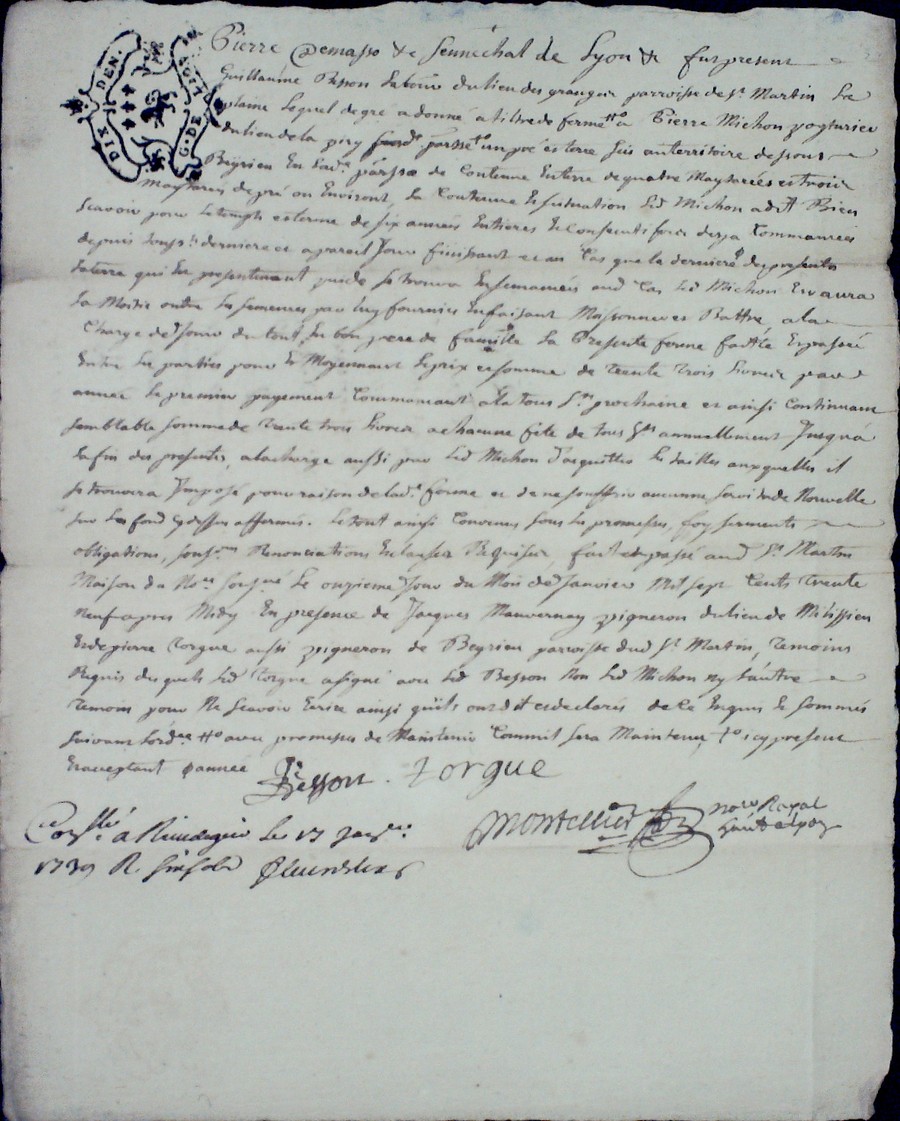 DIX DEN. G. DE
Pierre Demasso &c Sennechal de Lyon &c fut present
Guillaume Besson Labour du lieu des granges parroisse de St Martin La
plaine Lequel de gré a donné a titre de ferme a Pierre Michon voyturier
du lieu de la pary parsse un pré et terre sis au territoire dessous
Beyrieu En lad. parsse de Contenue En terre de quatre Maytarées et trois
maytarées de pré ou Environt, La Contenue et situation Led Michon a dit Bien
scavoir pour Le temps et terme de six années Entieres et Consecutifves desja Commancées
depuis derniere et a pareil Jour finissant et au Cas que la derniere des presentes
La terre qui En presentement se trouva Ensemancée aud Cas Led Michon En aura
La Moitie outre Les semences par Luy fournies En faisant Moissonner et Battre, a la
Charge de Jouir du tout En bon pere de famille La Presente ferme faitte Et passée
Entre Les parties pour et Moyennant Le prix et somme de Trente Trois Livres par
année Le premier payement Commancant a la tous Sts prochaine et ainsi Continuant
semblable somme de Trente trois Livres a chacune fête de tous Sts annuellement Jusqu'à
La fin des presentes, a la charge aussi par Led Michon d'acquitter Les tailles auxquelles il
se trouvera Imposé pour raison de lad. ferme et de ne souffrir aucunne servitude Nouvelle
sur Les fond cydessus affermés. Le tout ainsi Convenu sous Les promesses, foy serments
obligations, Renonciations Et clauses Requises, fait et passé aud St Martin
Maison du Nore soussné Le onzieme Jour du Mois de Janvier Mil sept Cents Trente
neuf apres Midy En presence de Jacques Mauvernay vigneron du lieu de Milissieu
Et de pierre Torgue aussi vigneron de Beyrieu parroisse dud St Martin, temoins
Requis desquels Led Torgue a signé avec Led Besson Non Led Michon ny L'autre
temoin pour Ne scavoir Ecrire ainsi qu'ils ont dit et declarés de Ce Enquis Et sommés
suivant L'ordce avec promesses de Maintenir Commil sera Maintenu, icy present
Et acceptant
Besson. Torgue
Montellier nore Royal
Conllé à Rivedegier Le 17 Janver
1739 R.